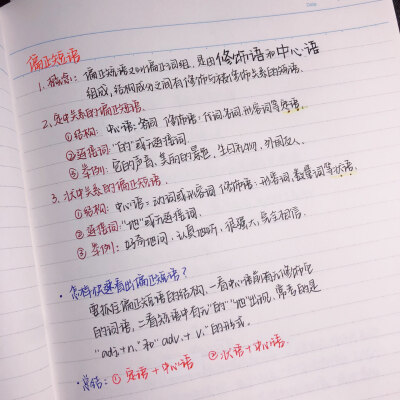 偏正短语
1. 概念: 偏正短语又叫偏正词组, 是由修饰语和中心语
组成, 结构成分之间有修饰与被修饰关系的短语.
2. 定中关系的偏正短语.
①结构: 中心语: 名词 修饰语: 代词名词形容词等定语.
②连接词: "的"或无连接词.
③举例: 它的声音, 美丽的景色, 生日礼物, 外国友人.
3. 状中关系的偏正短语.
①结构: 中心语: 动词或形容词 修饰语: 形容词, 数量词等状语.
②连接词: "地"或无连接词.
③举例: 好奇地问, 认真地听, 很强大, 完全相信.
· 怎样快速看出偏正短语?
要抓住偏正短语的结构, 一看中心语前有无修饰它
的词语, 二看短语中有无"的""地"出现, 常考的是
"adj.+n." 和 "adv.+v." 的形式.
· 总结: ①定语+中心语 ②状语+中心语.